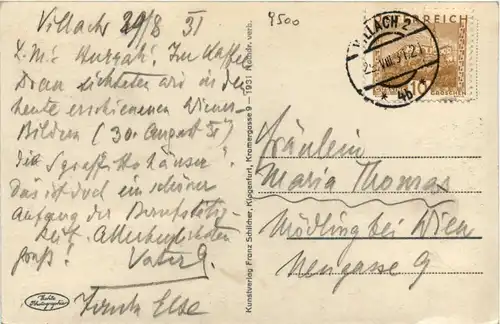 Villach 29/8 31
L. M.: Hurrah! Im Kaffee
Drau sichteten wir in den
heute erschienenen Wiener
Bildern (30. August 31)
die "Sgraffittohäuser".
Das ist doch ein schöner
Anfang der Berufstätig-
keit. Allerherzlichsten
Gruß! Vater
Else
Echte Photographie
9500
Kunstverlag Franz Schilcher, Klagenfurt, Kramergasse 9 — 1931 Nachdr. verb.
VILLACH 2
VIII 31
* 4b *
ÖSTERREICH
10
GROSCHEN
Fräulein
Maria Thomas
Mödling bei Wien
Neugasse 9